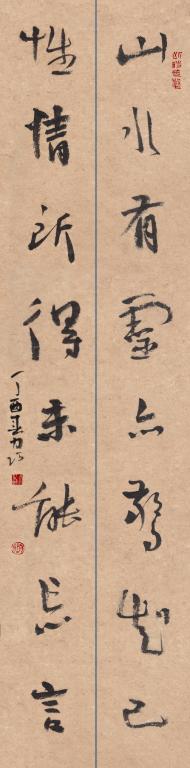 山水有靈亦驚知己
性情所得未能忘言
丁酉春力之